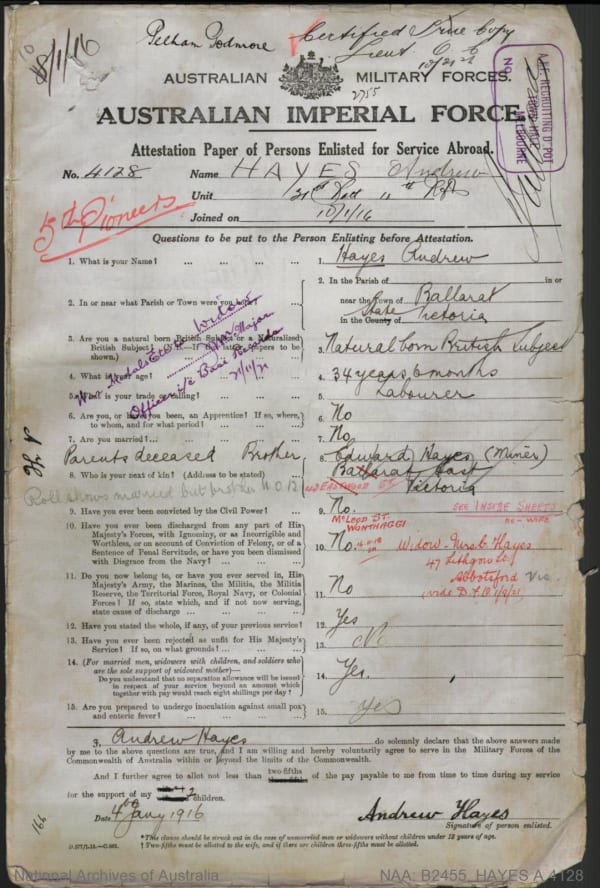 8/1/16
Pelham Podmore
Certified True Copy
Lieut
AUSTRALIAN MILITARY FORCES.
2755
AUSTRALIAN IMPERIAL FORCE.
A.I.F. RECRUITING DEPOT
TOWN HALL
MELBOURNE
No.
Attestation Paper of Persons Enlisted for Service Abroad.
No. 4128 Name HAYES Andrew
Unit 21st Batt 11th Rfts
Joined on 10/1/16
5th Pioneers
Questions to be put to the Person Enlisting before Attestation.
1. What is your Name? ... 1. Hayes Andrew
2. In or near what Parish or Town were you born? 2. In the Parish of in or
near the Town of Ballarat
in the County of State Victoria
3. Are you a natural born British Subject or a Naturalized
British Subject? (N.B.—If the latter, papers to be
shown.) 3. Natural born British Subject
4. What is your age? 4. 34 years 6 months
5. What is your trade or calling? 5. Labourer
6. Are you, or have you been, an Apprentice? If so, where,
to whom, and for what period? 6. No
7. Are you married? ... 7. No
War Medals Escort Widow
Major
Officer i/c Base Records
21/11/21
Parents deceased Brother
8. Who is your next of kin? (Address to be stated) 8. Edward Hayes (Miner)
Ballarat East
Victoria
EASTWOOD ST.
Roll shows married but brother N.O.K.
9. Have you ever been convicted by the Civil Power? ... 9. No.
SEE INSIDE SHEETS
RE-WIFE
McLEOD ST.
WONTHAGGI
10. Have you ever been discharged from any part of His
Majesty's Forces, with Ignominy, or as Incorrigible and
Worthless, or on account of Conviction of Felony, or of a
Sentence of Penal Servitude, or have you been dismissed
with Disgrace from the Navy? ... 10. No.
Widow - Mrs C. Hayes
47 Lithgow St
Abbotsford Vic.
11. Do you now belong to, or have you ever served in, His
Majesty's Army, the Marines, the Militia, the Militia
Reserve, the Territorial Force, Royal Navy, or Colonial
Forces? If so, state which, and if not now serving,
state cause of discharge ... 11. No
12. Have you stated the whole, if any, of your previous service? 12. Yes
13. Have you ever been rejected as unfit for His Majesty's
Service? If so, on what grounds? ... 13. No
14. (For married men, widowers with children, and soldiers who
are the sole support of widowed mother)—
Do you understand that no separation allowance will be issued
in respect of your service beyond an amount which
together with pay would reach eight shillings per day? 14. Yes.
15. Are you prepared to undergo inoculation against small pox
and enteric fever? 15. Yes
I, Andrew Hayes do solemnly declare that the above answers made
by me to the above questions are true, and I am willing and hereby voluntarily agree to serve in the Military Forces of the
Commonwealth of Australia within or beyond the limits of the Commonwealth.
And I further agree to allot not less than two-fifths of the pay payable to me from time to time during my service
for the support of my children.
Date 4th Jany 1916
Andrew Hayes
Signature of person enlisted.
166
*This clause should be struck out in the case of unmarried men or widowers without children under 18 years of age.
† Two-fifths must be allotted to the wife, and if there are children three-fifths must be allotted.
National Archives of Australia NAA: B2455, HAYES A 4128